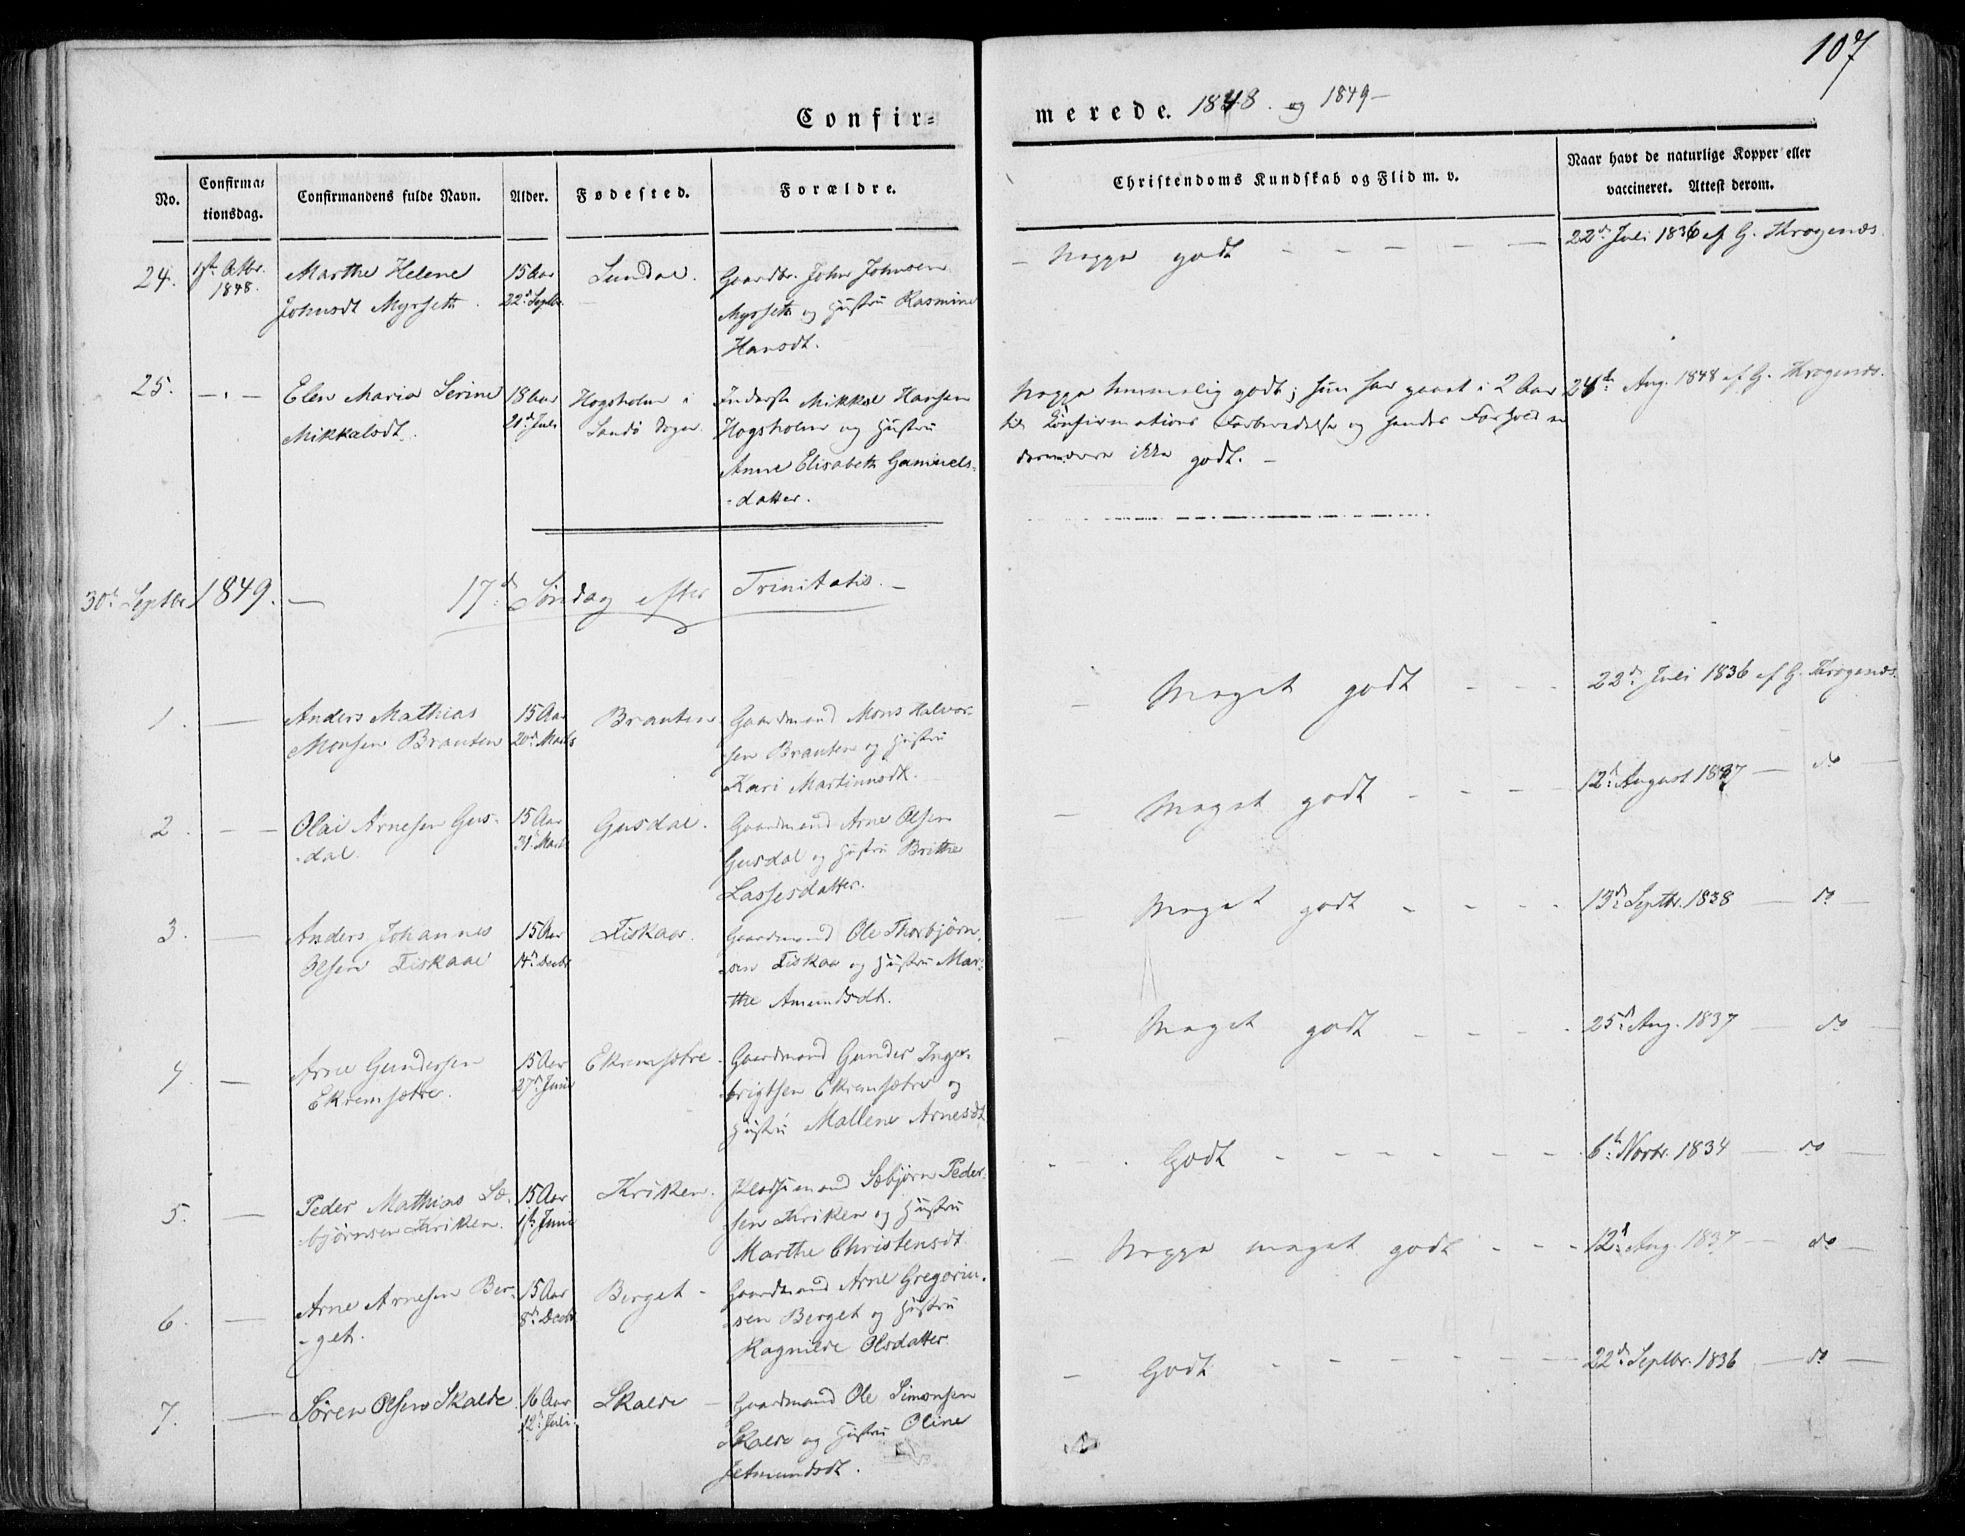 107
Confir-
merede. 1848. og 1849-
No.
Confirma-
tionsdag.
Confirmandens fulde Navn.
Alder.
Fødested.
Forældre.
Christendoms Kundskab og Flid m. v.
Naar havt de naturlige Kopper eller
vaccineret. Attest derom.
24.
1ste Octbr.
1848.
Marthe Helene
Johnsdt Myrseth.
15 Aar
22d Septbr.
Sundal.
Gaardbr. John Johnsen
Myrseth og Hustru Rasmine
Hansdt.
- Noggε godt - - - - -
22d Juli 1836 af G. Krogenæs.
25.
Elen Maria Serine
Mikkalsdt.
18 Aar
21d Juli
Hogsholm i
Sandø Sogn.
Inderst Mikkal Hansen
Hogsholm og Hustru
Anne Elisabeth Gamuels-
-datter.
Nogge temmelig godt; hun har gaaet i 2 Aar
til Konfirmations Forberedelse og hendes Forhold
ikke godt. -
24de Aug. 1848 af G. Krogenæs.
30te Septbr 1849. — 17de Søndag efter Trinitatis. -
1. —
Anders Mathias
Monsen Brauten
15 Aar
20d Marts
Brauten
Gaardmand Mons Halvor-
sen Brauten og Hustru
Kari Martinusdt.
- Meget godt - - -
22d Juli 1836 af G. Krogenæs.
2. —
Olai Arnesen Gus-
-dal.
15 Aar
31d Marts
Gusdal.
Gaardmand Arne Olsen
Gusdal og Hustru Brithe
Lassesdatter.
- Meget godt - - - -
12d August 1837 — do —
3. —
Anders Johannes
Olsen Fiskaae
15 Aar
14d Decbr
Fiskaae.
Gaardmand Ole Thorbjørn-
sen Fiskaa og Hustru Mar-
the Amundsdt.
- Meget godt - - - -
13d Septbr. 1838 — do —
4. —
Arne Gundersen
Ekremsætre.
15 Aar
27d Juni
Ekremsætre.
Gaardmand Gunder Inge-
brigtsen Ekremsætre og
Hustru Mallene Arnesdt
- Meget godt - - - -
25d Aug. 1837 do —
5. —
Peder Mathias Sæ-
bjørnsen Kriken.
15 Aar
1ste Juni
Kriken.
Pladsemand Sæbjørn Peder-
sen Kriken og Hustru
Marthe Christensdt
- - Godt - - - - - -
6te Novbr. 1834 — do —
6. —
Arne Arnesen Ber-
-get.
15 Aar
8d Decbr
Berget -
Gaardmand Arne Gregorius-
sen Berget og Hustru
Ragnilde Olsdatter
- Nogge meget godt - - -
12d Aug. 1837 — do —
7. —
Søren Olsen Skalde.
16 Aar
12d Juli.
Skalde —
Gaardmand Ole Simonsen
Skalde og Hustru Oline
Jetmundsdt.
- Godt - - - - - -
22d Septbr. 1836 — do —